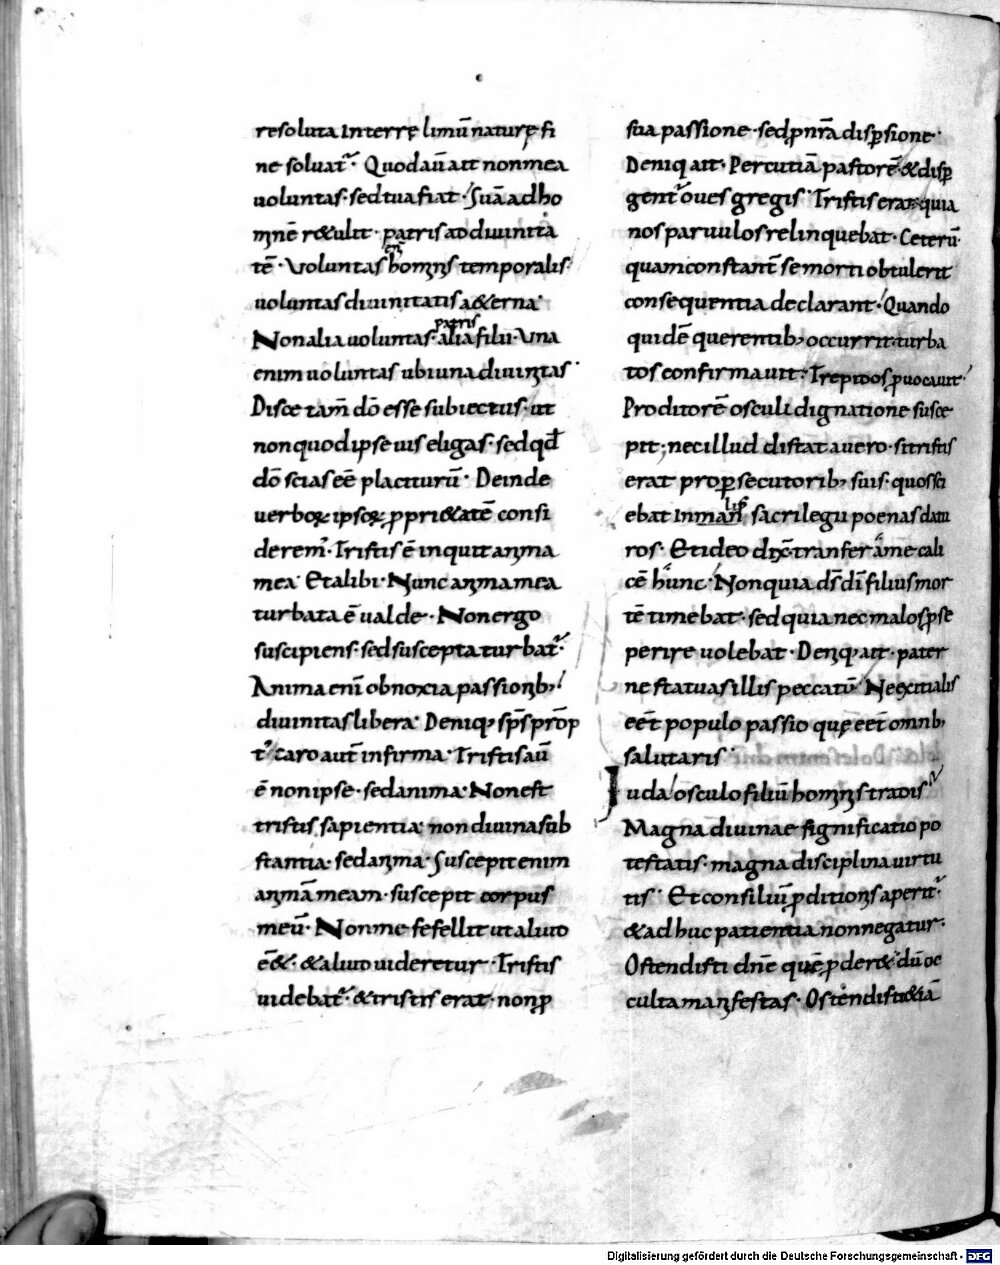 resoluta interrę limū naturę fi
ne soluat᷒· Quod aū ait non mea
uoluntas· sed tua fiat· Suā ad ho
mīnē r&ulit· patris ad diuinita
tē· Voluntas enī hominis temporalis·
uoluntas diuinitatis a&erna·
Non alia uoluntas· patris alia filii· Vna
enim uoluntas ubi una diuinitas·
Disce tam̄ dō esse subiectus· ut
non quod ipse uis eligas· sed qđ
dō scias eē placiturū· Deinde
uerboꝝ ipsoꝝ ꝓpri&atē consi
derem᷒· Tristis ē inquit anima
mea· Et alibi· Nunc anima mea
turbata ē ualde· Non ergo
suscipiens· sed suscepta turbat᷒·
Anima eni obnoxia passionib;
diuinitas libera· Deniq; sp̄s prōp
t᷒ caro aut̄ infirma· Tristis aū
ē non ipse· sed anima· Non est
tristis sapientia· non diuina sub
stantia· sed anima· Suscepit enim
animā meam· suscepit corpus
meū· Non me fefellit ut aliud
ē&· & aliud uideretur· Tristis
uidebat᷒· & tristis erat· non ꝓ
sua passione· sed ꝓ nr̄a disꝑsione·
Deniq; ait· Percutiā pastorē· & disꝑ
gent᷒ oues gregis· Tristis erat quia
nos paruulos relinquebat· Ceterū
quam constant̄ se morti obtulerit
consequentia declarant· Quando
quidē querentib; occurrit· turba
tos confirmauit· Trepidos ꝓuocauit·
Proditorē osculi dignatione susce
pit; nec illud distat a uero· si tristis
erat pro ꝑsecutorib; suis· quos sci
ebat inman̄ sacrilegii poenas datu
ros· Et ideo dix̄ transfer a me cali
cē hunc· Non quia d̄s dī filius mor
tē timebat· sed quia nec malos ꝓ se
perire uolebat· Deniq; ait· pater
ne statuas illis peccatū· Ne exitialis
eēt populo passio quę eēt omnib;
salutaris·
Iuda osculo filiū hominis tradis
Magna diuinae significatio po
testatis· magna disciplina uirtu
tis· Et consiliū ꝓditionis aperit᷒·
& adhuc patientia non negatur·
Ostendisti dn̄e quē ꝓder&· dū oc
culta manifestas· Ostendisti &iā